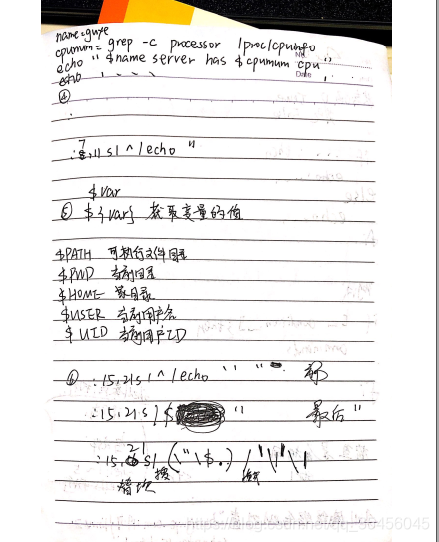 name=guye
cpumum= grep -c processor /proc/cpuinfo
echo " $name server has $cpumum cpu"
echo
④
:7,11 s/^/echo "
$var
⑤ ${var} 获取变量的值
$PATH 可执行文件目录
$PWD 当前目录
$HOME 家目录
$USER 当前用户名
$UID 当前用户ID
⑥ :15,21s/^/echo
:15,21s/$ " 最后"
:15,21s/ (\"\$.) /"\1"\1
替换
https://blog.csdn.net/qq_50456045